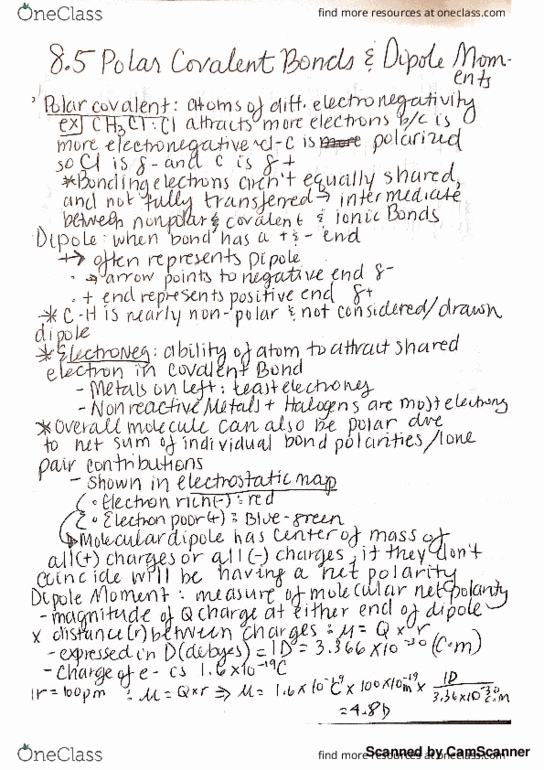 OneClass
find more resources at oneclass.com
8.5 Polar Covalent Bonds & Dipole Mom-
ents
Polar covalent: atoms of diff. electronegativity
ex CH3Cl: Cl attracts more electrons b/c is
more electronegative Cl-C is more polarized
so Cl is δ- and C is δ+
*Bonding electrons aren't equally shared,
and not fully transferred → intermediate
between nonpolar & covalent & ionic Bonds
Dipole: when bond has a + & - end
+→ often represents Dipole
· → arrow points to negative end δ-
· + end represents positive end δ+
* C-H is nearly non-polar & not considered/drawn
dipole
*Electroneg: ability of atom to attract shared
electron in covalent Bond
- Metals on left: least electroneg
- Nonreactive Metals + Halogens are most electroneg
*Overall molecule can also be polar due
to net sum of individual bond polarities/lone
pair contributions
- Shown in electrostatic map
• Electron rich(-): red
• Electron poor(+): Blue-green
Molecular dipole has center of mass of
all(+) charges or all(-) charges, if they don't
coincide will be having a net polarity
Dipole Moment: measure of molecular net polarity
- magnitude of Q charge at either end of dipole
x distance(r) between charges: μ = Q × r
- expressed in D(debyes) = 1D = 3.366 × 10^-30 (C·m)
- Charge of e- is 1.6×10^-19C
r = 100pm : μ = Q×r ⇒ μ = 1.6×10^-19C × 100×10^-19m × 1D / 3.36×10^-30 C·m
= 4.8D
OneClass
find more resources at oneclass.com
Scanned by CamScanner